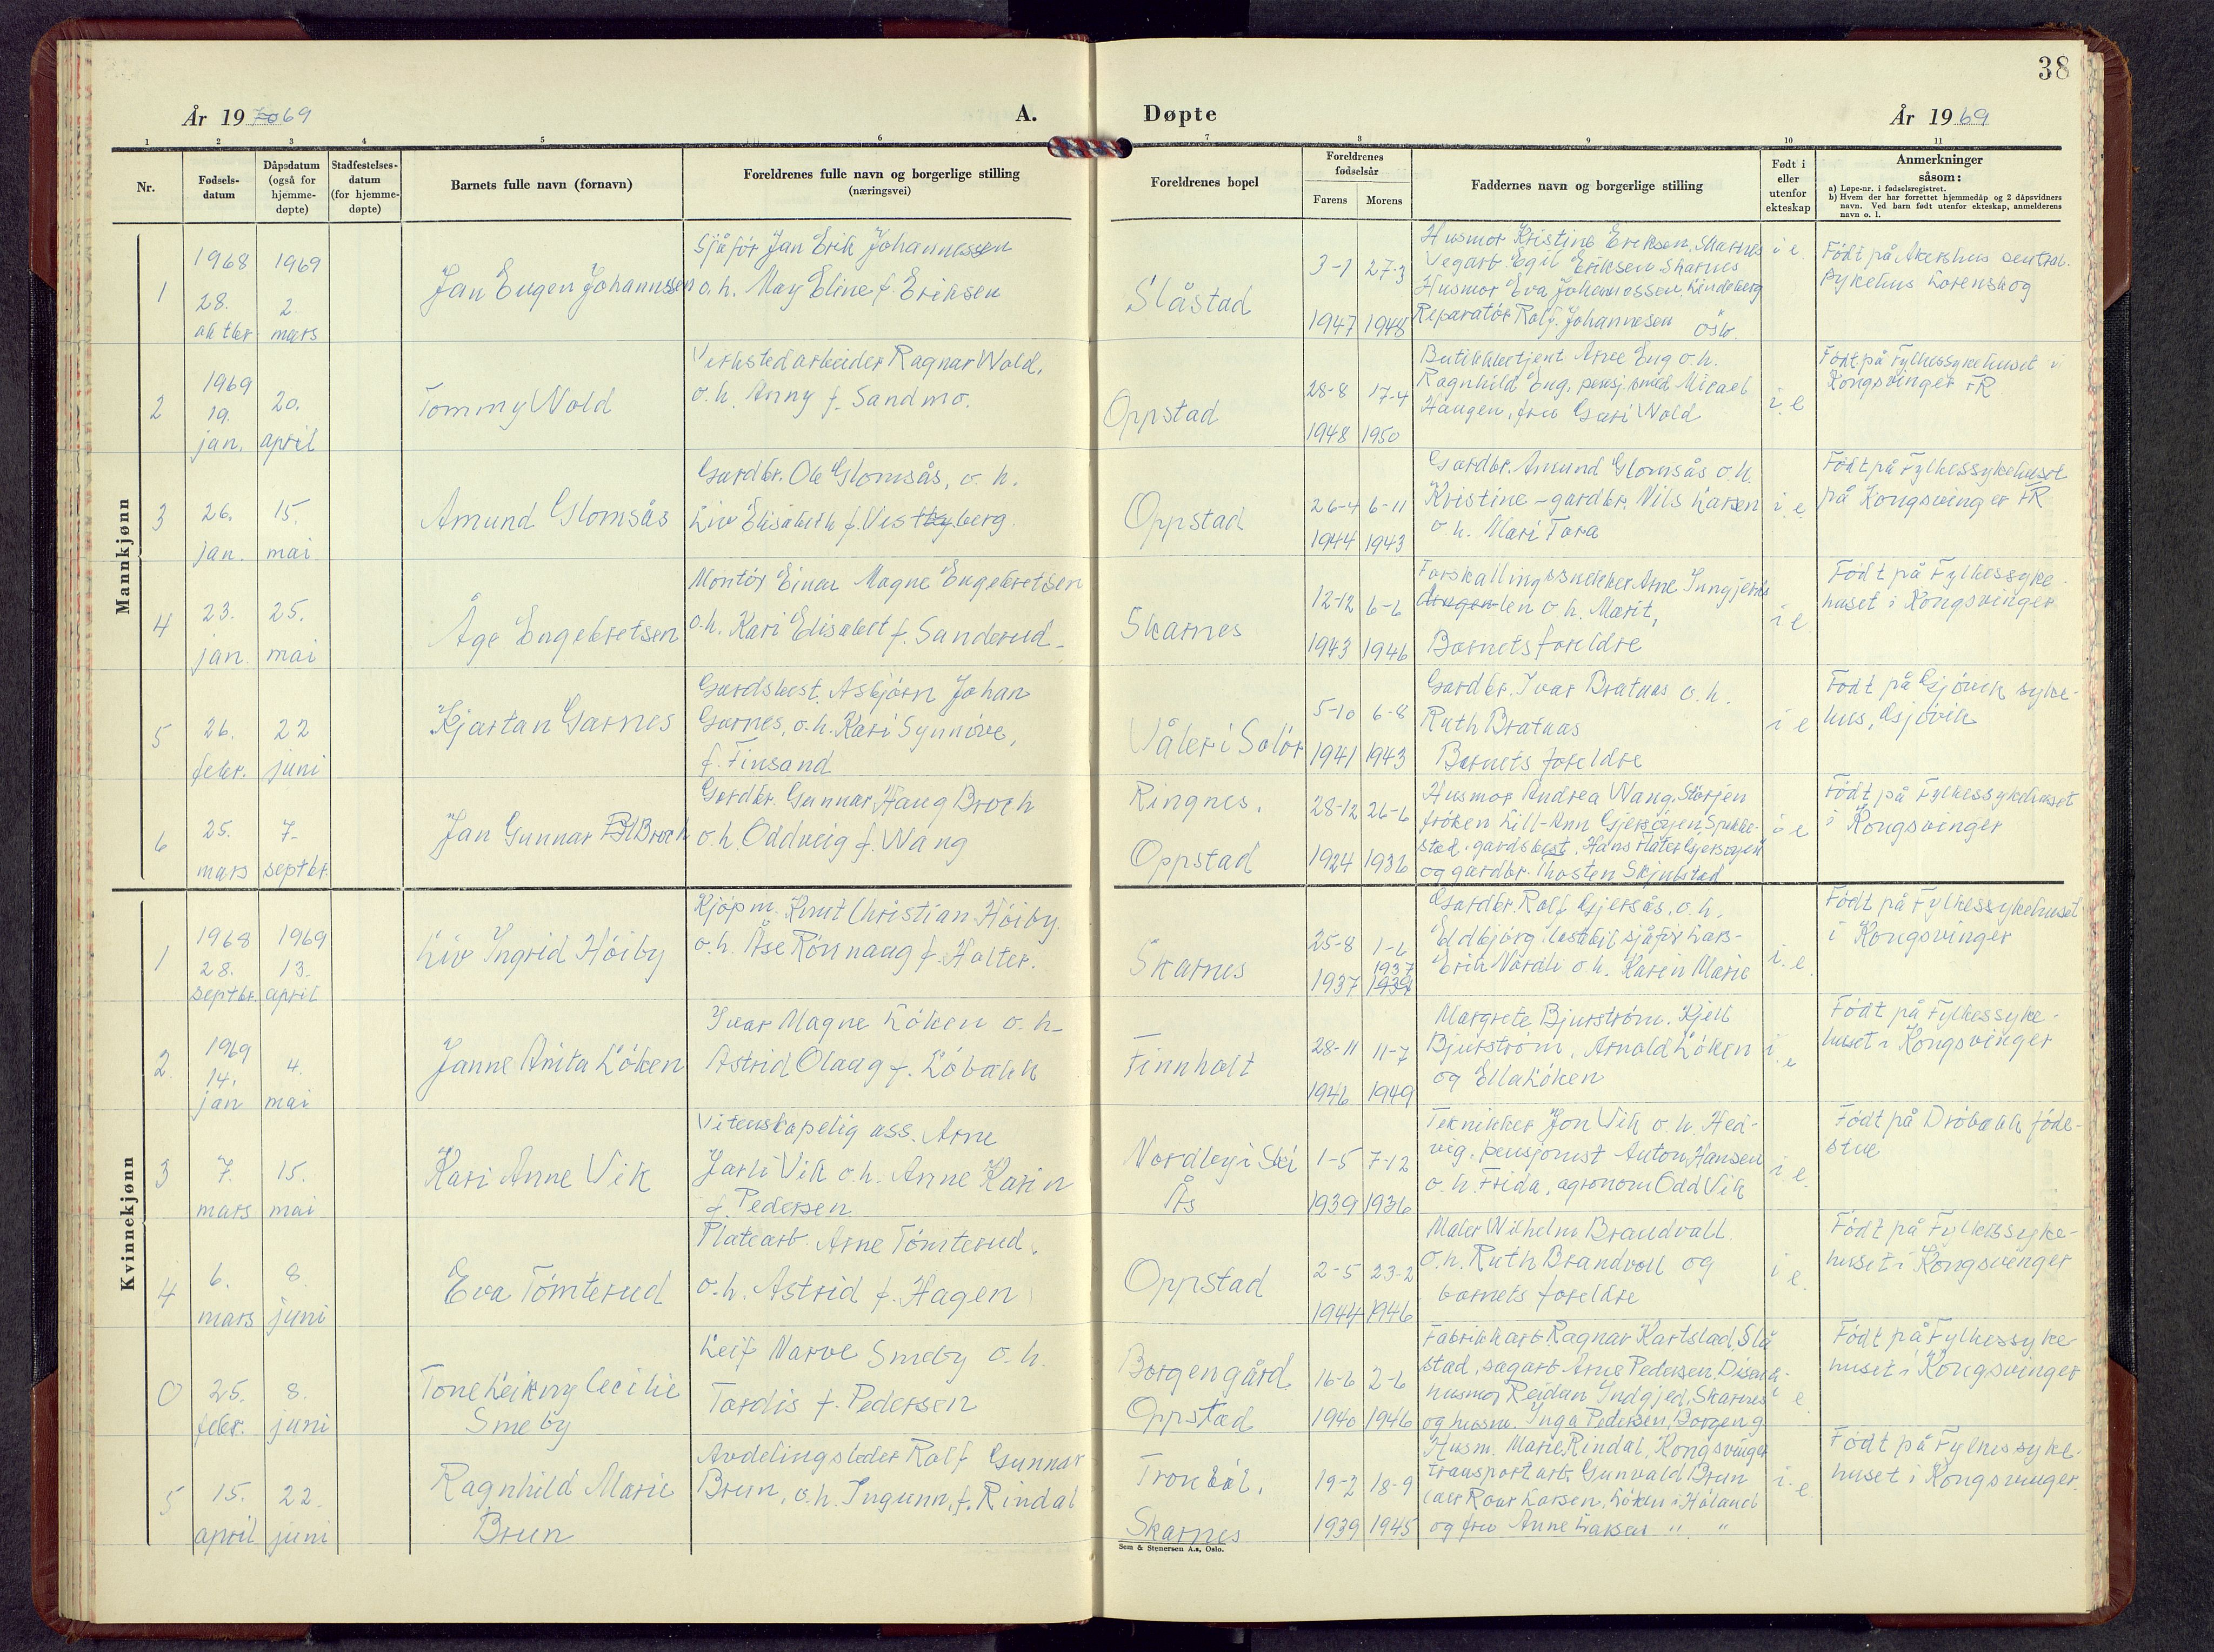 38
År 19 70 69
A.
Døpte
År 19 69
1 2 3 4 5 6 7 8 9 10 11
Nr.
Fødsels-
datum
Dåpsdatum
(også for
hjemme-
døpte)
Stadfestelses-
datum
(for hjemme-
døpte)
Barnets fulle navn (fornavn)
Foreldrenes fulle navn og borgerlige stilling
(næringsvei)
Foreldrenes bopel
Foreldrenes
fødselsår
Farens
Morens
Faddernes navn og borgerlige stilling
Født i
eller
utenfor
ekteskap
Anmerkninger
såsom:
a) Løpe-nr. i fødselsregistret.
b) Hvem der har forrettet hjemmedåp og 2 dåpsvidners
navn. Ved barn født utenfor ekteskap, anmelderens
navn o. l.
Mannkjønn
1
1968
28.
oktbr
1969
2.
mars
Jan Eugen Johannssen
Sjåfør Jan Erik Johannessen
o.h. May Eline f. Eriksen
Slåstad
3-1
1947
27-3
1948
Husmor Kristine Eriksen, Skarnes
Vegarb. Egil Eriksen Skarnes
Husmor Eva Johannessen, Lindeberg
Reparatør Rolf Johannesen Oslo.
i e
Født på Akershus sentral.
Sykehus Lørenskog
2
1969
19.
jan.
20.
april
Tommy Wold
Verkstedarbeider Ragnar Wold,
o.h. Anny f. Sandmo.
Oppstad
28-8
1948
17-4
1950
Butikkbetjent Arve Eng o.h.
Ragnhild Eng, pensj. smed Micael
Haugen, fru Guri Wold
i. e
Født på Fylkessykehuset i
Kongsvinger FR
3
26.
jan.
15.
mai
Amund Glomsås
Gardbr. Ole Glomsås, o. h.
Liv Elisabeth f. Vestbyberg.
Oppstad
26-4
1944
6-11
1943
Gardbr. Amund Glomsås o.h.
Kristine - gardbr. Nils Larsen
o h. Mari Tora
i e.
Født på Fylkessykehuset
på Kongsvinger FR
4
23.
jan.
25.
mai
Åge Engebretsen
Montør Einar Magne Engebretsen
o.h. Kari Elisabet f. Sanderud-
Skarnes
12-12
1943
6-6
1946
len o h. Marit,
Barnets foreldre
i e
Født på Fylkessyke-
huset i Kongsvinger
5
26.
febr.
22
juni
Kjartan Garnes
Gardsbest. Asbjørn Johan
Garnes, o.h. Kari Synnøve,
f. Finsand
Våler i Solør
5-10
1941
6-8
1943
Gardbr. Ivar Brataas o. h.
Ruth Brataas
Barnets foreldre
i e
Født på Gjøvik syke-
hus, Gjøvik
6
25.
mars
7-
septbr.
Jan Gunnar Broch
Gardbr. Gunnar Haug Broch
o.h. Oddveig f. Wang
Ringnes.
Oppstad
28-12
1924
26-6
1936
Husmor Andrea Wang,
frøken Lill-Ann
stad, gardsbest. Hans
og gardbr. Thosten Skjulstad
i e
Født på Fylkessykehuset
i Kongsvinger
Kvinnekjønn
1
1968
28.
septbr.
1969
13.
april
Liv Ingrid Høiby
Kjøpm. Knut Christian Høiby.
o.h. Åse Rønnaug f. Holter.
Skarnes
25-8
1937
1-6
1937
1939
Gardbr. Rolf Gjersås, o.h.
Eldbjørg, lastebilsjåfør Lars-
Erik Nordli o.h. Karin Marie
i. e.
Født på Fylkessykehuset
i Kongsvinger
2.
1969
14.
jan
4.
mai
Janne Anita Løken
Ivar Magne Løken o.h-
Astrid Olaug f. Løbakk
Finnholt
28-11
1946
11-7
1949
Margrete Bjurstrøm. Kjell
Bjurstrøm, Arnold Løken
og Ella Løken
i. e
Født på Fylkessyke-
huset i Kongsvinger
3
7.
mars
15.
mai
Kari Anne Vik
Vitenskapelig ass. Arne
Jarli Vik o.h. Anne Karin
f. Pedersen
Nordby i Ski
Ås
1-5
1939
7-12
1936
Teknikker Jon Vik o.h. Hed-
vig, pensjonist Anton Hansen
o. h. Frida, agronom Odd Vik
i e.
Født på Drøbakk føde-
stue
4
6.
mars
8.
juni
Eva Tømterud
Platearb. Arne Tømterud.
o.h. Astrid f. Hagen
Oppstad
2-5
1944
23-2
1946
Maler Wilhelm Brandvall
o.h. Ruth Brandvoll og
barnets foreldre
i e.
Født på Fylkessyke-
huset i Kongsvinger
0
25.
febr.
8.
juni
Tone Leikny Cecilie
Smeby
Leif Narve Smeby o.h.
Tordis f. Pedersen
Borgengård
Oppstad
16-6
1940
2-6
1946
Fabrikkarb. Ragnar Kartstad, Slå
stad, sagarb. Arne Pedersen, Disenå-
husmor Reidun Skarnes
og husm. Inga Pedersen, Borgen g
i e
Født på Fylkessyke-
huset i Kongsvinger
5
15.
april
22.
juni
Ragnhild Marie
Brun
Avdelingsleder Rolf Gunnar
Brun, o.h. Ingunn, f. Rindal
Tronbøl.
Skarnes
19-2
1939
18-9
1945
Husm. Marie Rindal, Kongsvinger
transportarb. Gunvald Brun
Roar Larsen, Løken i Høland
og fru Anne Larsen " "
i. e.
Født på Fylkessyke-
huset i Kongsvinger.
Sem & Stenersen A.s, Oslo.